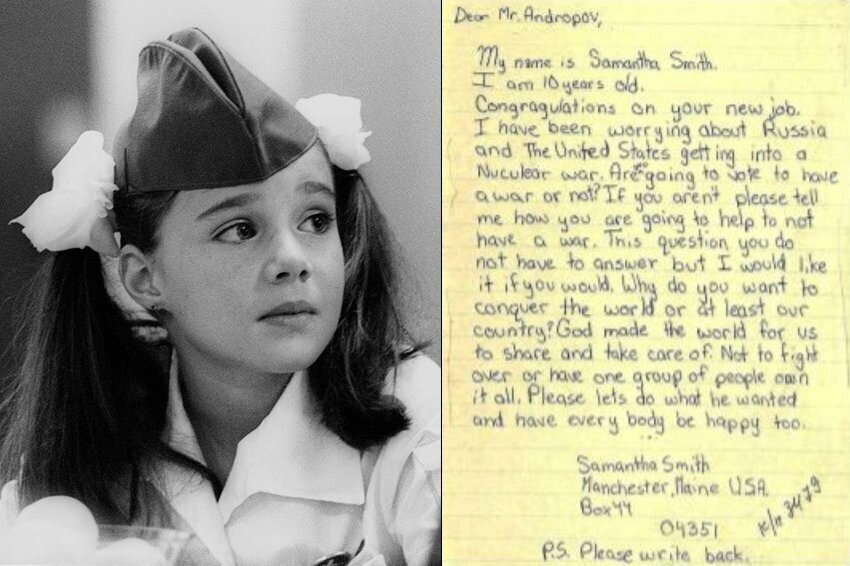 Dear Mr. Andropov,
My name is Samantha Smith.
I am 10 years old.
Congragulations on your new job.
I have been worrying about Russia
and The United States getting into a
Nuculear war. Are going to vote to have
a war or not? If you aren't please tell
me how you are going to help to not
have a war. This question you do
not have to answer but I would like
it if you would. Why do you want to
conquer the world or at least our
country? God made the world for us
to share and take care of. Not to fight
over or have one group of people own
it all. Please lets do what he wanted
and have every body be happy too.
Samantha Smith
Manchester, Maine USA.
Box 44
04351
3479
P.S. Please write back.